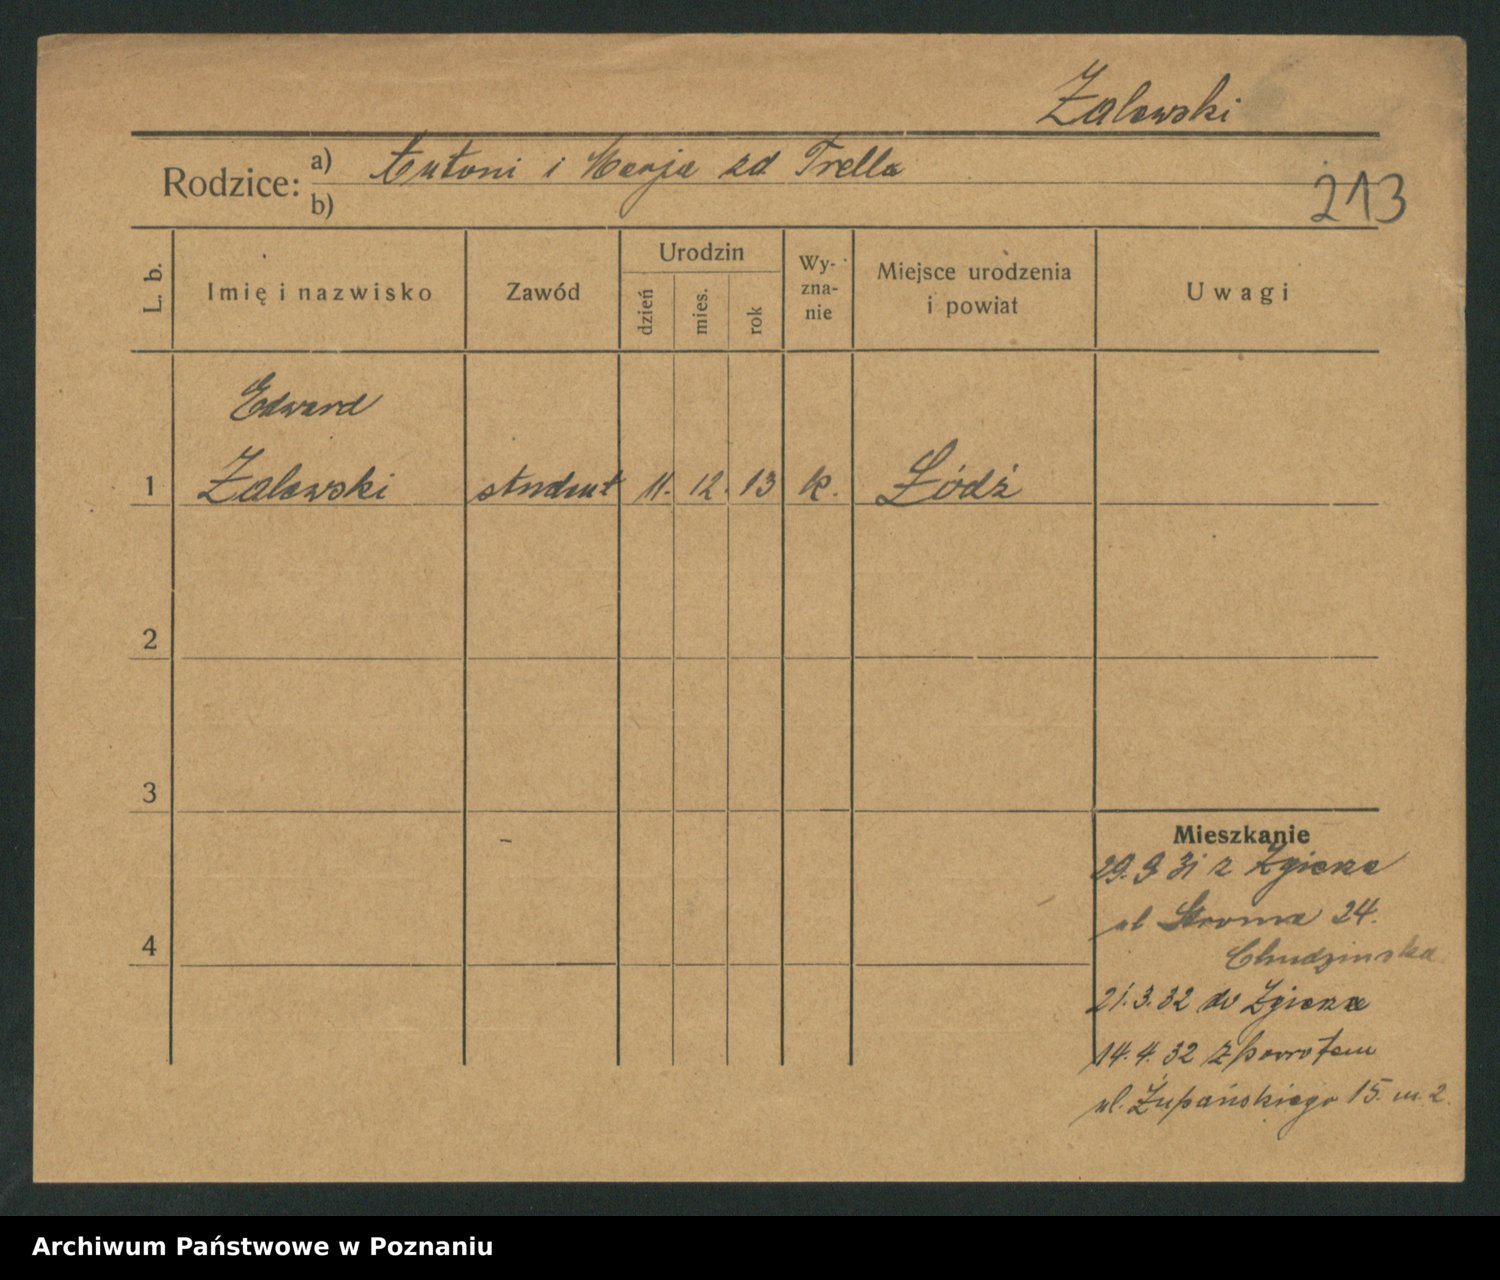 Zalewski
Rodzice: a) Antoni i Marja zd Trella
b)
213
L. b.
Imię i nazwisko
Zawód
Urodzin
dzień
mies.
rok
Wy-
zna-
nie
Miejsce urodzenia
i powiat
Uwagi
Edward
1 Zalewski student 11. 12. 13 k. Łódź
2
3
4
Mieszkanie
29. 9 31 z Zgierza
ul Stroma 24.
Chudzinska
21. 3. 32 do Zgierza
14. 4. 32 z powrotem
ul. Żupańskiego 15. m. 2.
Archiwum Państwowe w Poznaniu